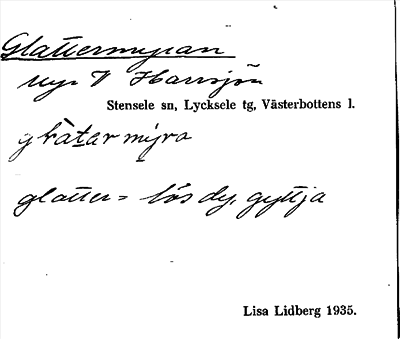 Glattermyran
myr V Harrsjön
Stensele sn, Lycksele tg, Västerbottens l.
glàtarmyra
glatter = lös dy, gyttja
Lisa Lidberg 1935.